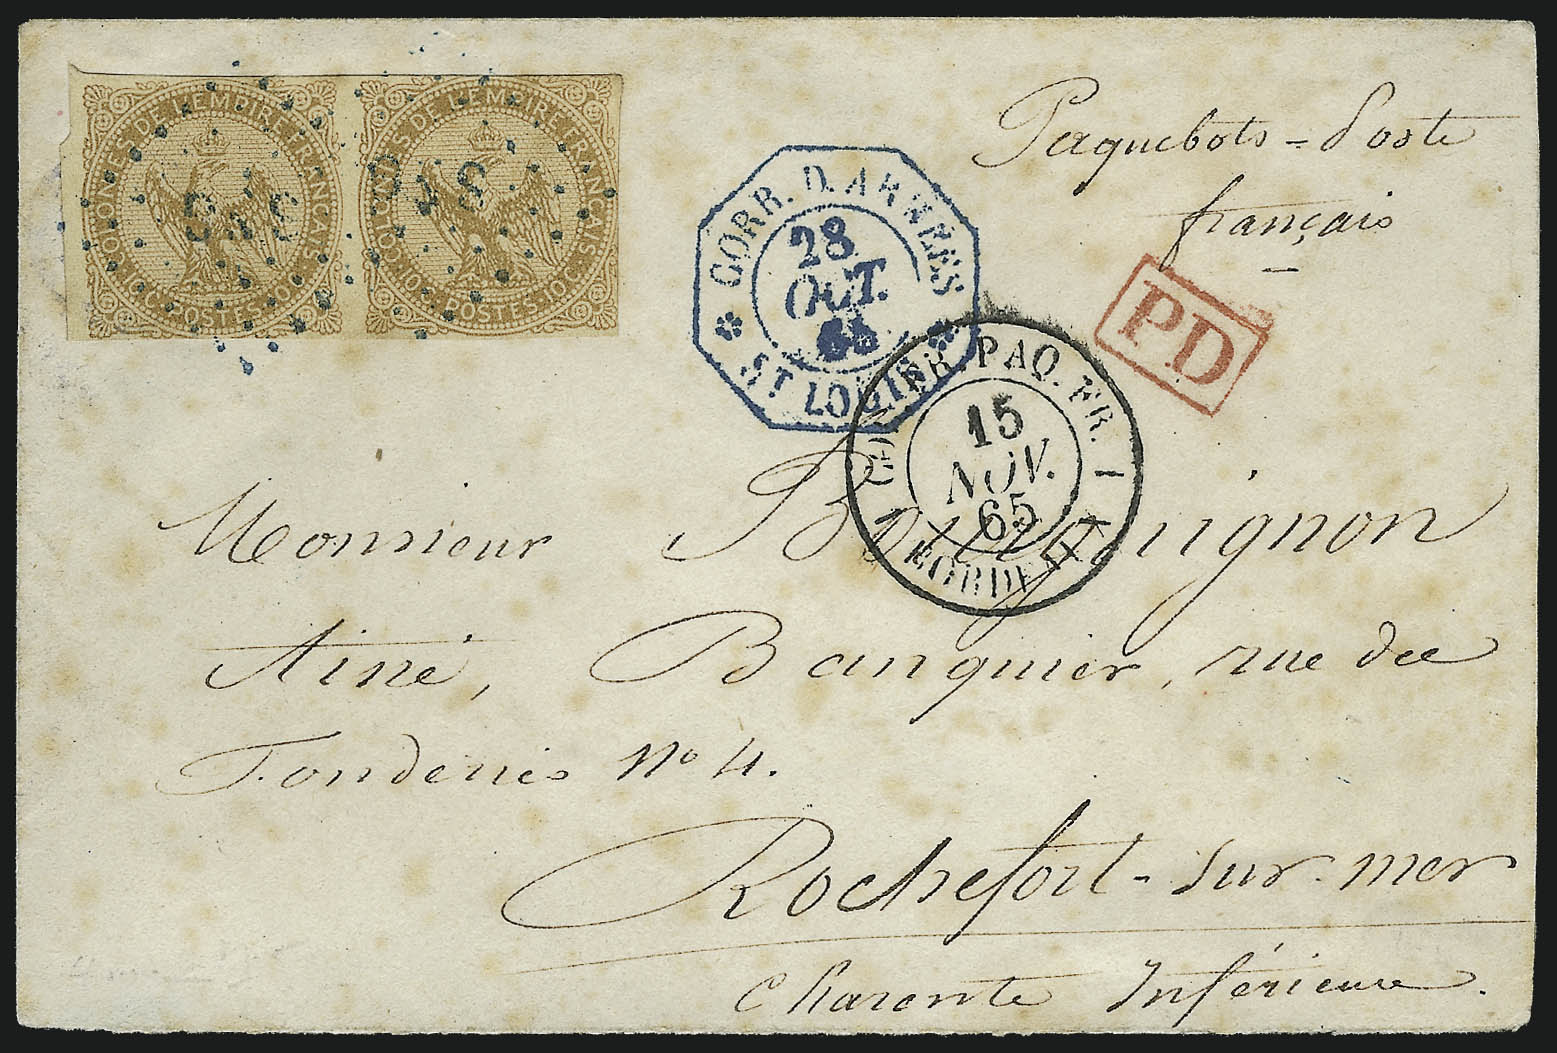 COLONIES DE L'EMPIRE FRANÇAIS
10.C. POSTES. 10.C.
COLONIES DE L'EMPIRE FRANÇAIS
10.C. POSTES. 10.C.
CORR. D. ARMÉES
28
OCT.
65
ST LOUIS
Paquebots-Poste
français
PD
COL. FR. PAQ. FR. 1
15
NOV.
65
BORDEAUX
Monsieur Bourguignon
Ainé, Banquier, rue des
Fonderies No 4.
Rochefort-sur-mer
Charente Inférieure.